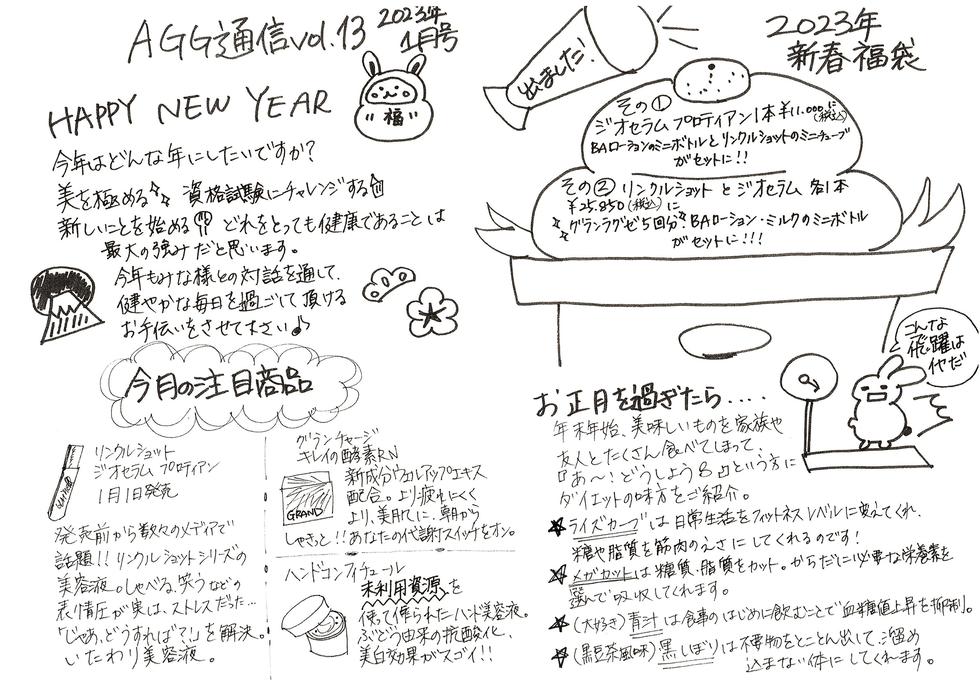 AGG通信vol.13 2023年
1月号
HAPPY NEW YEAR
福
今年はどんな年にしたいですか?
美を極める 資格試験にチャレンジする
新しいことを始める どれをとっても健康であることは
最大の強みだと思います。
今年もみな様との対話を通して、
健やかな毎日を過ごして頂ける
お手伝いをさせて下さい♪
今月の注目商品
リンクルショット
ジオセラム プロティアン
1月1日発売
発表前から数々のメディアで
話題!!リンクルショットシリーズの
美容液。しゃべる、笑うなどの
表情圧が実は、ストレスだった…
「じゃあ、どうすれば?!」を解決。
いたわり美容液。
グランチャージ
キレイの酵素RN
GRAND
新成分ウェルアップエキス
配合。より疲れにくく
より、美肌に、朝から
しゃきっと!!あなたの代謝スイッチをオン。
ハンドコンフィチュール
未利用資源を
使って作られたハンド美容液。
ぶどう由来の抗酸化、
美白効果がスゴイ!!
2023年
新春福袋
出ました!
その①
ジオセラム プロティアン1本¥11,000に(税込)
BAローションのミニボトルとリンクルショットのミニチューブ
がセットに!!
その② リンクルショット と ジオセラム 各1本
¥25,850(税込)に
グランラグゼ5回分 BAローション・ミルクのミニボトル
がセットに!!!
こんな
飛躍は
イヤだ
お正月を過ぎたら....
年末年始、美味しいものを家族や
友人とたくさん食べてしまって、
『あ〜!どうしよう』という方に
ダイエットの味方をご紹介。
☆ライズカーブは日常生活をフィットネスレベルに変えてくれ、
糖や脂質を筋肉のえさにしてくれるのです!
☆メガカットは糖質、脂質をカット。からだに必要な栄養素を
選んで吸収してくれます。
☆(大好き)青汁は食事のはじめに飲むことで血糖値上昇を抑制。
☆(黒豆茶風味)黒しぼりは不要物をとことん出して、溜め
込まない体にしてくれます。